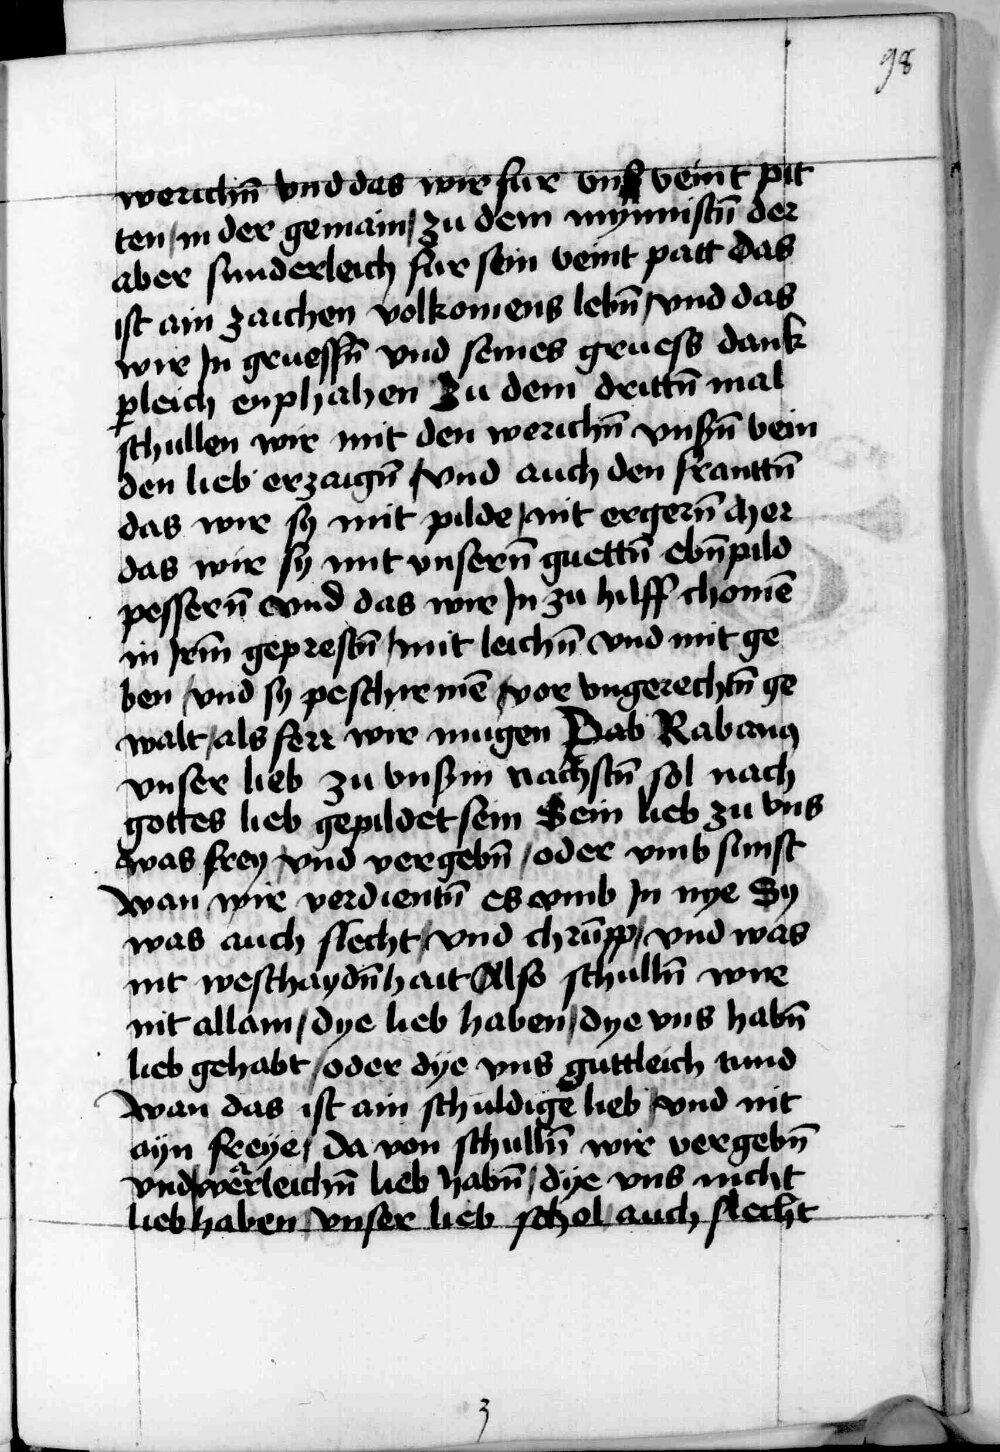 98
werichn̄ vnd das wir fur vnß veint pit
ten / in der gemain / zu dem mynnistn̄ der
aber sunderleich fur sein veint patt das
ist ain zaichen volkomens lebn̄ / vnd das
wir In gruessn̄ vnd seines gruess dank
pͤleich enphahen Zu dem drittn̄ mal
schullen wir mit den werichn̄ vnßn̄ vein
den lieb erzaign̄ / vnd auch den frantn̄
das wir sy mit pilde / nit ergern̄ Aher
das wir sy mit vnsern̄ guettn̄ ebn̄pild
pessern̄ vnd das wir In zu hilff chomē
in Irm̄ geprestn̄ / mit leichn̄ vnd mit ge
ben / vnd sy peschirmē / vor vngerechtn̄ ge
walt / als ferr wir mugen Dab Rabanꝰ
vnser lieb zu vnßm nachstn̄ sol nach
gottes lieb gepildet sein Sein lieb zu vns
was frey / vnd vergebn̄ / oder vmb sunst
wan wir verdientn̄ es vmb In nye Sy
was auch slecht / vnd chrūpp / vnd was
mit weschaydn̄hait Also schulln̄ wir
nit allain / dye lieb haben / dye vns habn̄
lieb gehabt / oder dye vns guttleich tund
wan das ist ain schuldige lieb / vnd nit
ayn freye / da von schulln̄ wir vergebn̄
vnd / werleichn̄ lieb habn̄ / dye vns nicht
lieb haben / vnser lieb schol auch slecht
3